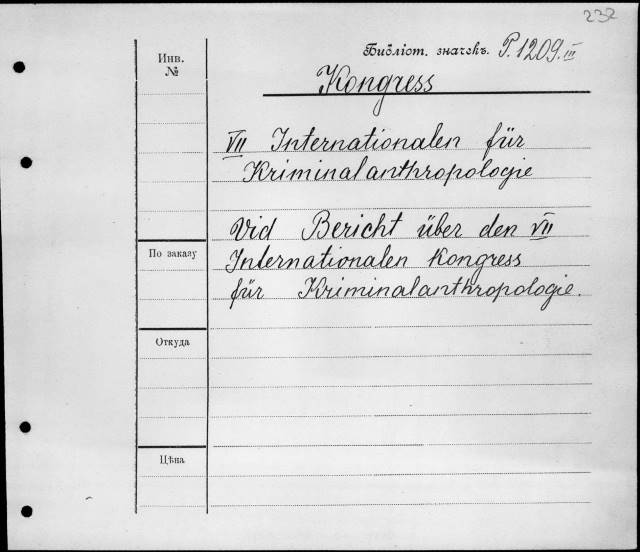 232
Инв. №
Библіот. значекъ. P.1209.III
Kongress
VII Internationalen für
Kriminalanthropologie
Vid Bericht über den VII
Internationalen Kongress
für Kriminalanthropologie.
По заказу
Откуда
Цѣна